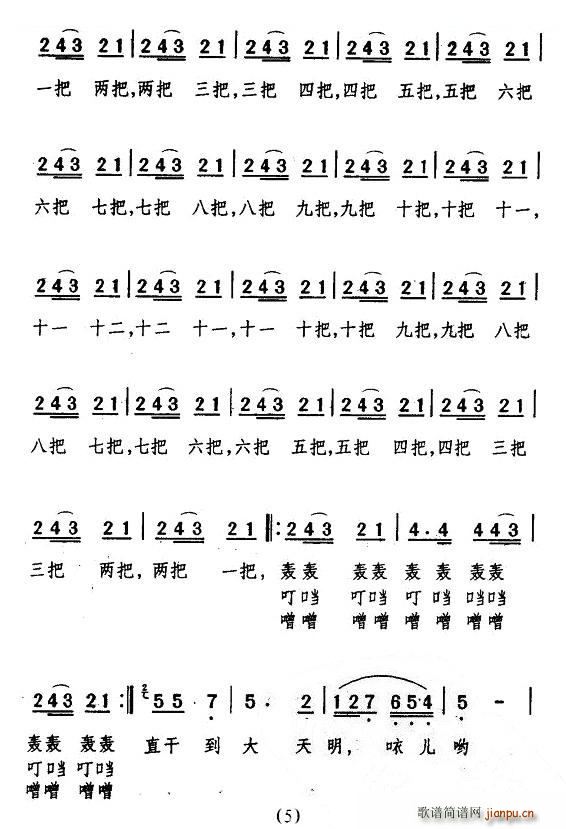 2 4 3 2 1 | 2 4 3 2 1 | 2 4 3 2 1 | 2 4 3 2 1 | 2 4 3 2 1 |
一把 两把,两把 三把,三把 四把,四把 五把,五把 六把
2 4 3 2 1 | 2 4 3 2 1 | 2 4 3 2 1 | 2 4 3 2 1 | 2 4 3 2 1 |
六把 七把,七把 八把,八把 九把,九把 十把,十把 十一,
2 4 3 2 1 | 2 4 3 2 1 | 2 4 3 2 1 | 2 4 3 2 1 | 2 4 3 2 1 |
十一 十二,十二 十一,十一 十把,十把 九把,九把 八把
2 4 3 2 1 | 2 4 3 2 1 | 2 4 3 2 1 | 2 4 3 2 1 | 2 4 3 2 1 |
八把 七把,七把 六把,六把 五把,五把 四把,四把 三把
2 4 3 2 1 | 2 4 3 2 1 ‖: 2 4 3 2 1 | 4. 4 4 4 3 |
三把 两把,两把 一把, 轰轰 轰轰 轰 轰 轰轰
叮当 叮当 叮 当 当当
噌噌 噌噌 噌 噌 噌噌
2 4 3 2 1 :‖ 5 5 7 | 5. 2 | 1 2 7 6 5·4 | 5 - |
轰轰 轰轰 直干 到 大 天明, 咴儿哟
叮当 叮当
噌噌 噌噌
(5)
歌谱简谱网 jianpu.cn